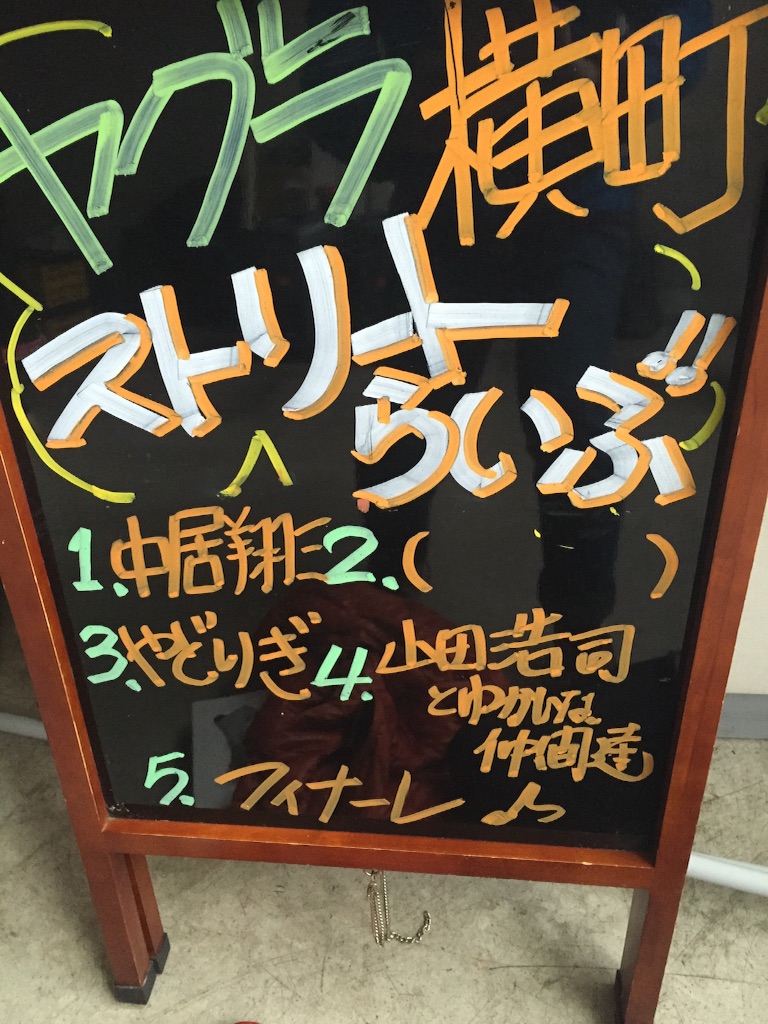 ヤグラ横町
ストリート
らいぶ!!
1.中居翔仁 2.(　　　)
3.やどりぎ 4.山田浩司
とゆかいな
仲間達
5.フィナーレ♪